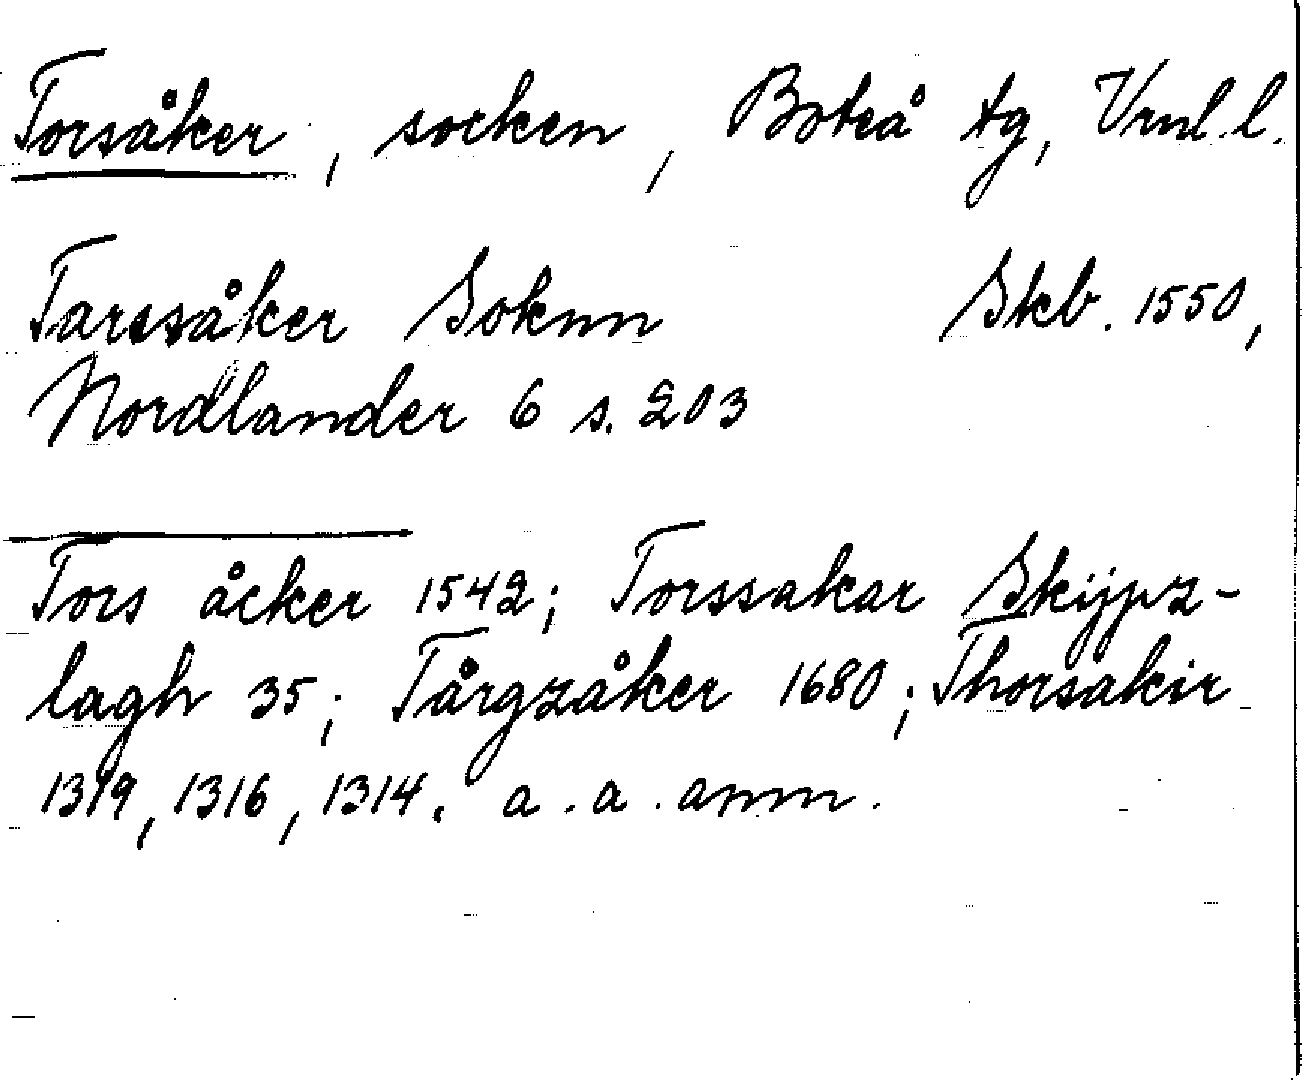 Torsåker, socken, Boteå tg, Vrnl. l.
Tarssåker Soknn Skb. 1550,
Nordlander 6 s. 203
Tors åcker 1542; Torssakar Skijpz-
lagh 35; Tårgzåker 1680; Thorsakir
1319, 1316, 1314. a. a. anm.